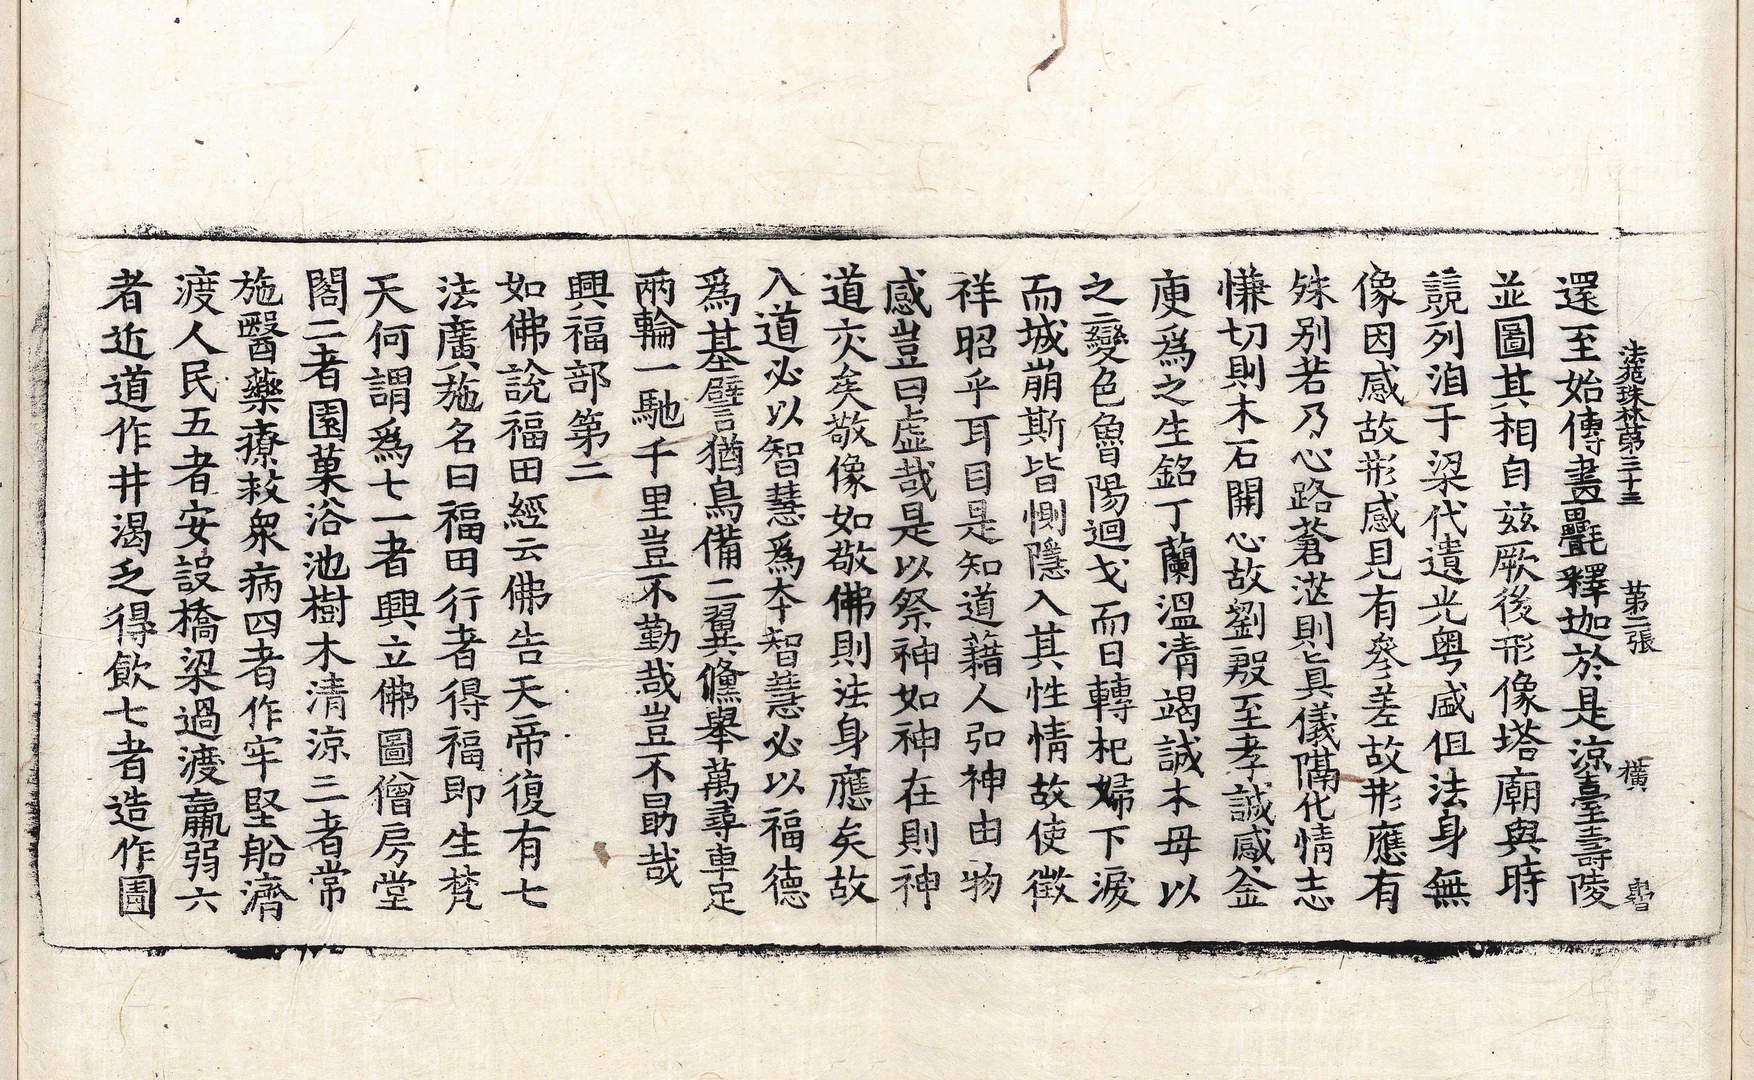 法苑珠林第三十三　第二張　橫
還至始傳畫氎釋迦於是涼臺壽陵
並圖其相自玆厥後形像塔廟與時
競列洎于梁代遺光粤盛但法身無
像因感故形感見有參差故形應有
殊别若乃心路蒼茫則眞儀隔化情志
慊切則木石開心故劉殷至孝誠感釡
庾爲之生銘丁蘭溫凊竭誠木母以
之變色魯陽迴戈而日轉杞婦下淚
而城崩斯皆惻隱入其性情故使徵
祥昭乎耳目是知道藉人弘神由物
感豈曰虛哉是以祭神如神在則神
道亦矣敬像如敬佛則法身應矣故
入道必以智慧爲本智慧必以福德
爲基譬猶鳥備二翼儵舉萬尋車足
兩輪一馳千里豈不勤哉豈不勗哉
興福部第二
如佛說福田經云佛告天帝復有七
法廣施名曰福田行者得福即生梵
天何謂爲七一者興立佛圖僧房堂
閣二者園菓浴池樹木清涼三者常
施醫藥療救衆病四者作牢堅船濟
渡人民五者安設橋梁過渡羸弱六
者近道作井渴乏得飮七者造作圊